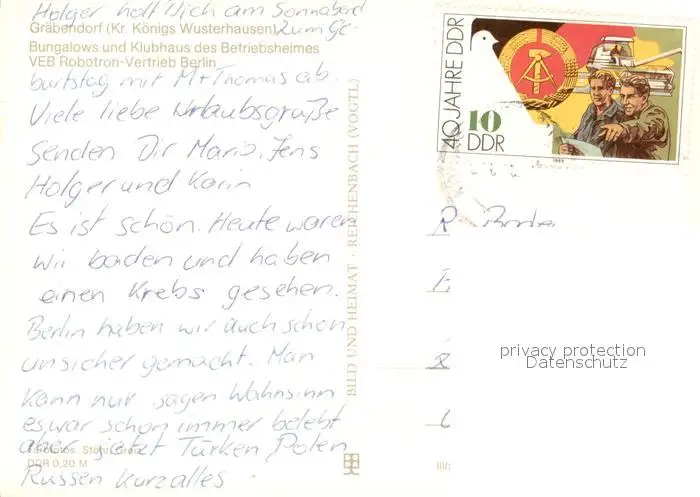 Holger holt Dich am Sonnabend
Gräbendorf (Kr. Königs Wusterhausen) zum Ge-
Bungalows und Klubhaus des Betriebsheimes
VEB Robotron-Vertrieb Berlin
burtstag mit M+Thomas ab.
Viele liebe Urlaubsgrüße
senden Dir Mario, Jens
Holger und Karin
Es ist schön. Heute waren
wir baden und haben
einen Krebs gesehen.
Berlin haben wir auch schon
unsicher gemacht. Man
kann nur sagen Wahnsinn
es war schon immer belebt
aber jetzt Türken, Polen
Russen kurz alles.
Farbfotos: Stöhr, Greiz
DDR 0,20 M
BILD UND HEIMAT · REICHENBACH (VOGTL)
40 JAHRE DDR
10
DDR
1989
R.
privacy protection
Datenschutz